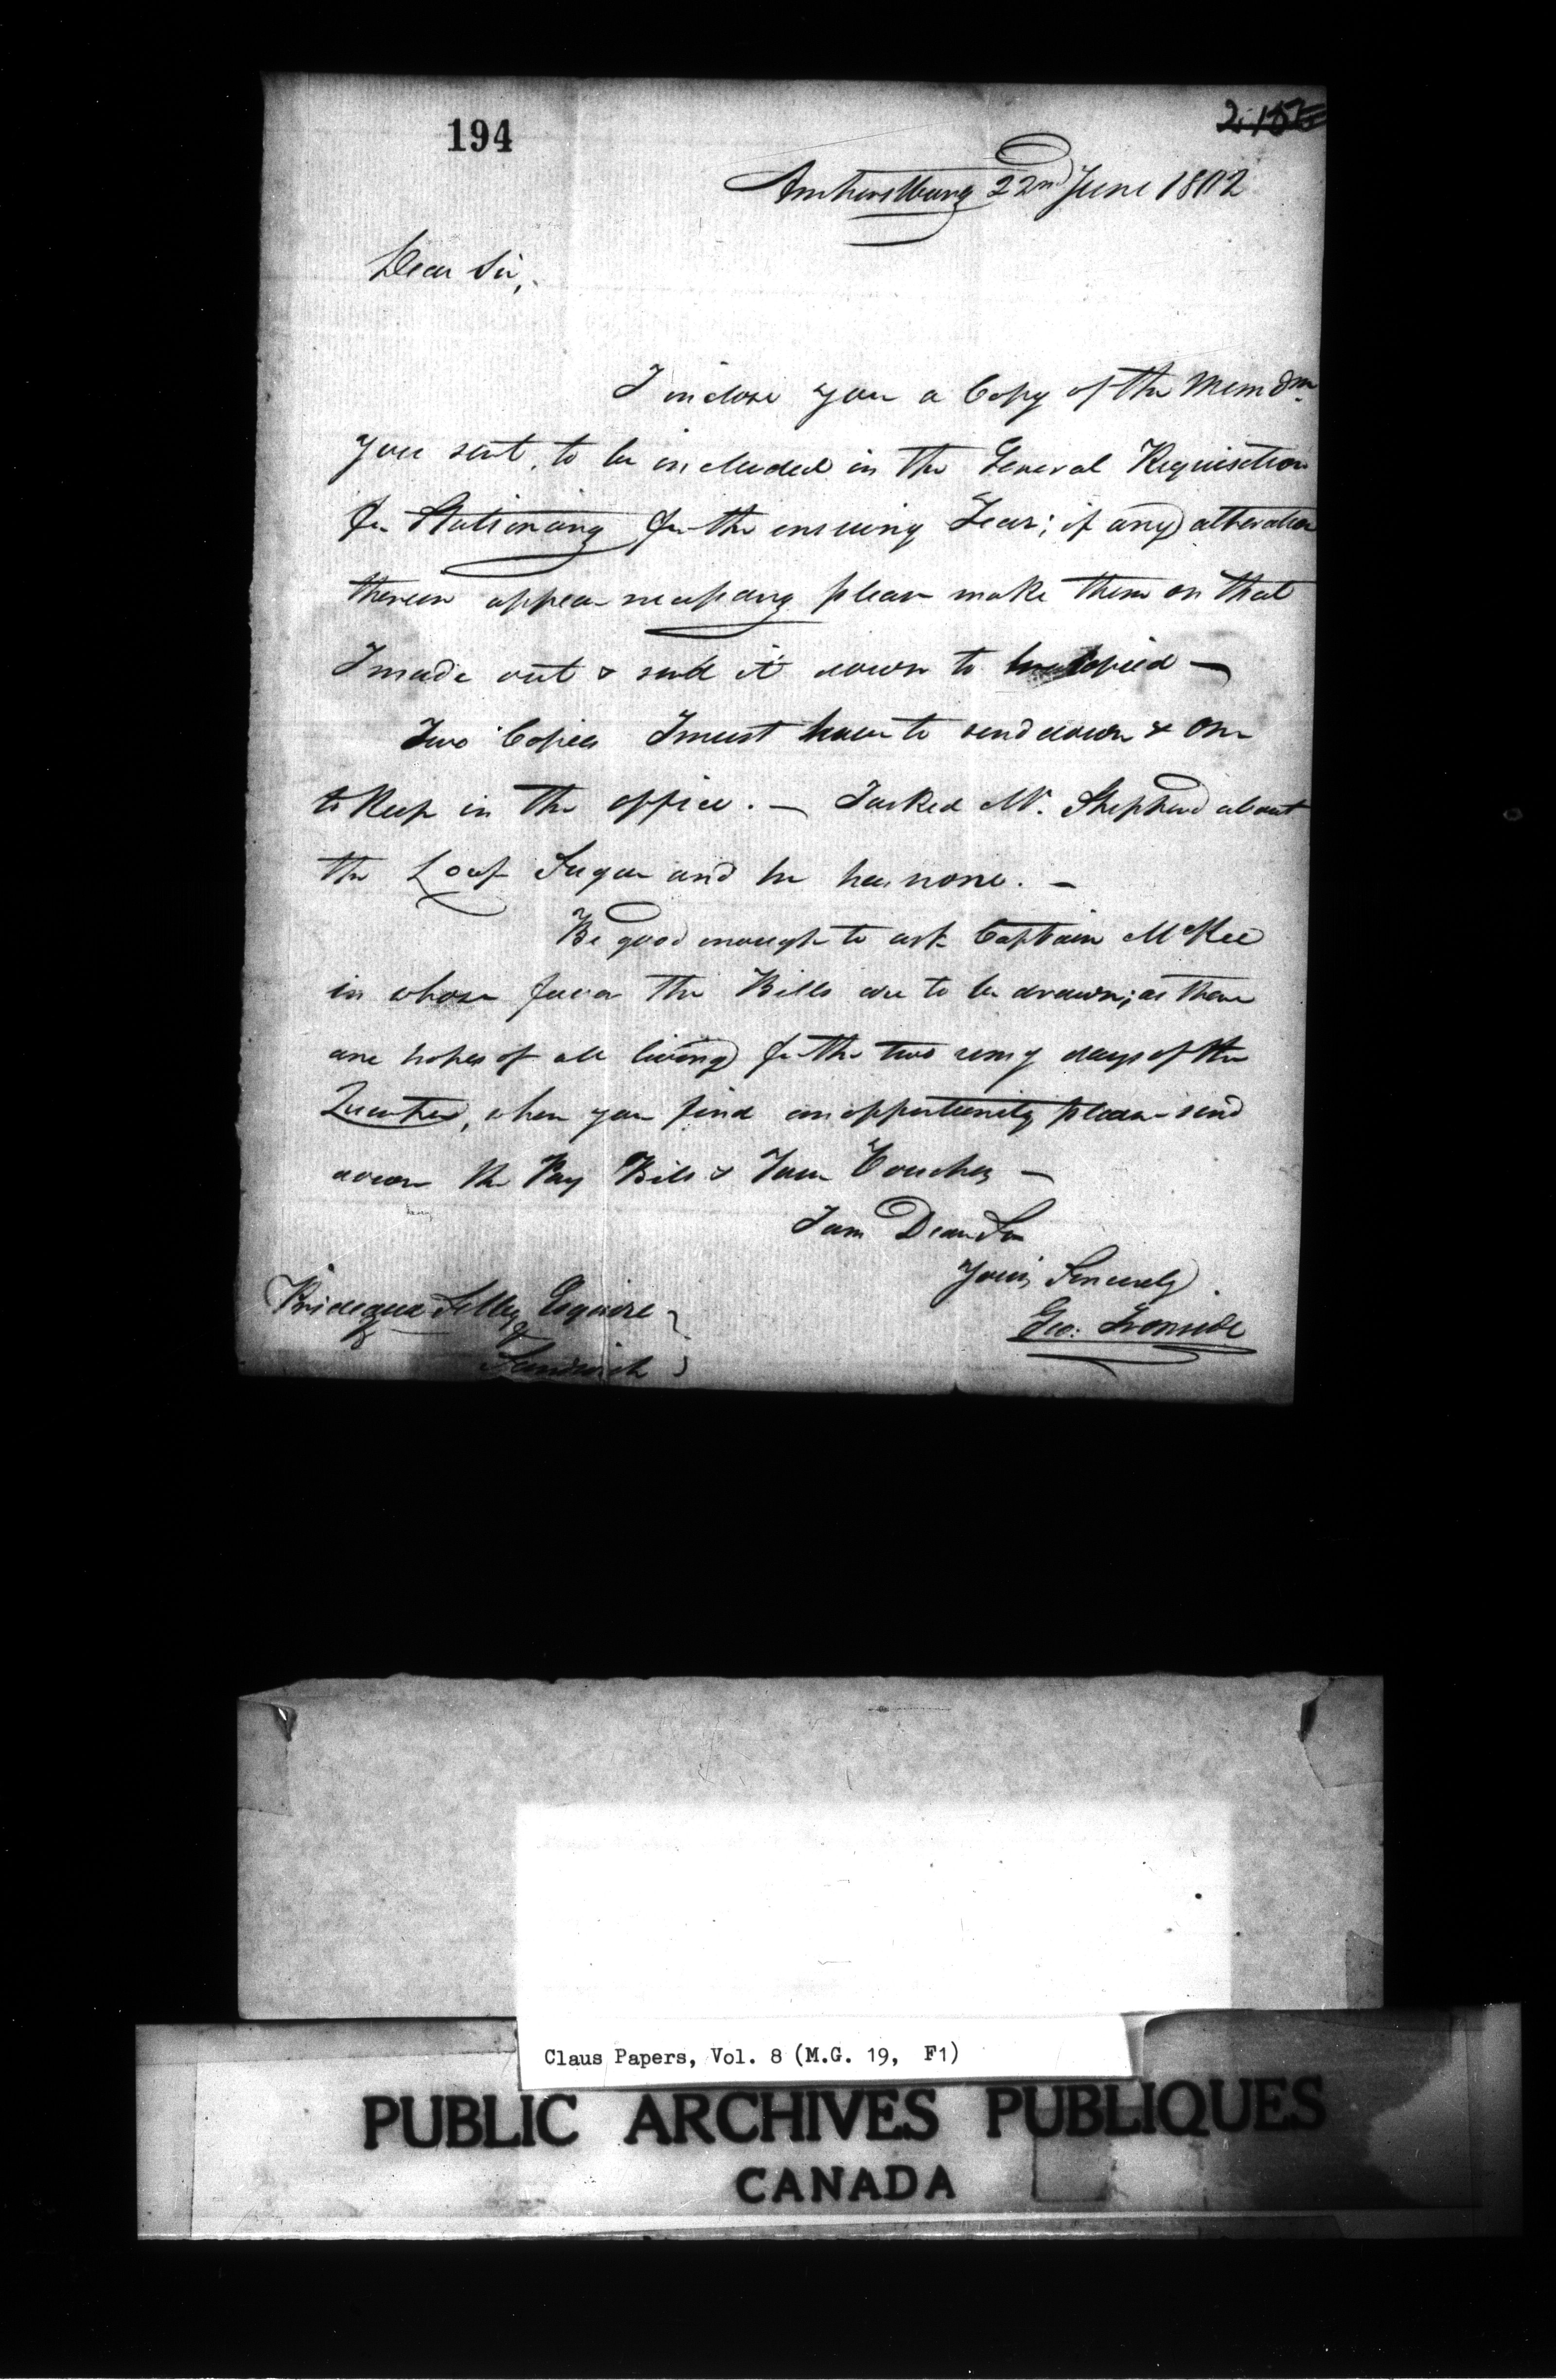 194
Amherstburg 22nd June 1802
Dear Sir,
I inclose you a Copy of the Memdm
you sent, to be included in the General Requisition
for Stationary for the ensuing Year; if any alteration
therein appear necessary please make them on that
I made out & send it down to be copied —
Two Copies I must have to send down & one
to keep in the office. — I asked Mr. Shepherd about
the Loaf Sugar and he has none. —
Be good enough to ask Captain McKee
in whose favor the Bills are to be drawn; as there
are hopes of all living for the two remg days of the
Quarter, when you find an opportunity please send
down the Pay Bills & Your Vouchers —
I am Dear Sir
Yours Sincerely
Geo: Ironside
Prideaux Selby Esquire
Sandwich
Claus Papers, Vol. 8 (M.G. 19, F1)
PUBLIC ARCHIVES PUBLIQUES
CANADA